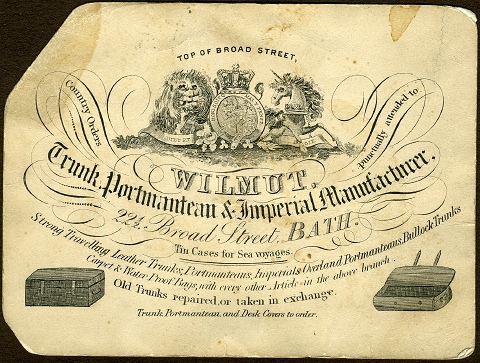 TOP OF BROAD STREET,
Country Orders
punctually attended to
WILMUT,
Trunk, Portmanteau & Imperial Manufacturer,
22½ Broad Street, BATH.
Tin Cases for Sea voyages.
Strong Travelling Leather Trunks, Portmanteaus, Imperials Overland Portmanteaus, Bullock Trunks
Carpet & Water Proof Bags, with every other Article in the above branch.
Old Trunks repaired, or taken in exchange.
Trunk, Portmanteau, and Desk Covers to order.